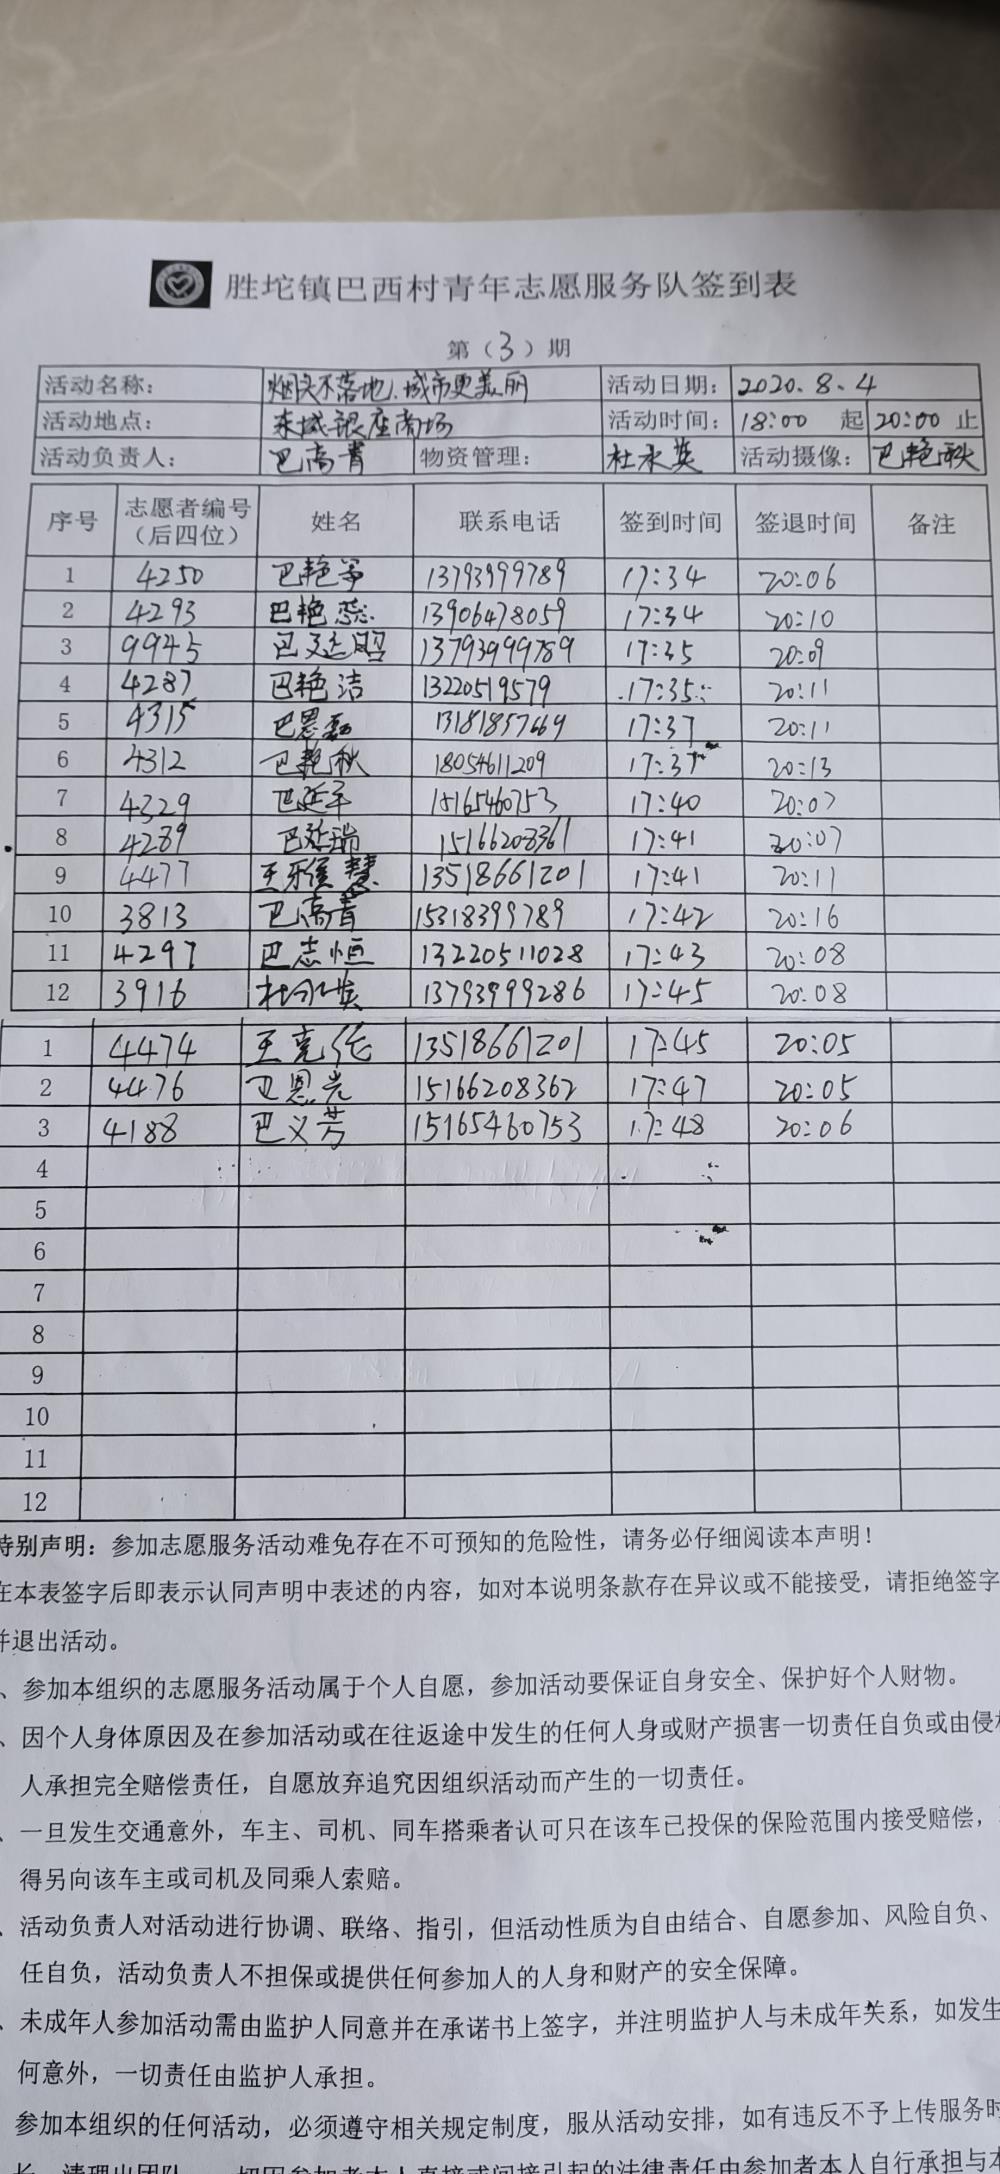 胜坨镇巴西村青年志愿服务队签到表
第（3）期
活动名称： 烟头不落地、城市更美丽 活动日期： 2020.8.4
活动地点： 东城银座商场 活动时间： 18:00 起 20:00 止
活动负责人： 巴高青 物资管理： 杜永英 活动摄像： 巴艳秋
序号 志愿者编号（后四位） 姓名 联系电话 签到时间 签退时间 备注
1 4250 巴艳 13793999789 17:34 20:06
2 4293 巴艳蕊 13906478059 17:34 20:10
3 9945 巴延昭 13793999789 17:35 20:09
4 4287 巴艳洁 13220519579 17:35 20:11
5 4315 巴恩磊 13181857669 17:37 20:11
6 4312 巴艳秋 18054611209 17:37 20:13
7 4329 巴延平 15165460753 17:40 20:07
8 4289 巴延瑞 15166208361 17:41 20:07
9 4477 王乐慧 13518661201 17:41 20:11
10 3813 巴高青 15318399789 17:42 20:16
11 4297 巴志恒 13220511028 17:43 20:08
12 3916 杜永英 13793999286 17:45 20:08
1 4474 王克伦 13518661201 17:45 20:05
2 4476 巴恩光 15166208362 17:47 20:05
3 4188 巴义芳 15165460753 17:48 20:06
4
5
6
7
8
9
10
11
12
特别声明：参加志愿服务活动难免存在不可预知的危险性，请务必仔细阅读本声明！
在本表签字后即表示认同声明中表述的内容，如对本说明条款存在异议或不能接受，请拒绝签字
并退出活动。
、参加本组织的志愿服务活动属于个人自愿，参加活动要保证自身安全、保护好个人财物。
、因个人身体原因及在参加活动或在往返途中发生的任何人身或财产损害一切责任自负或由侵权
人承担完全赔偿责任，自愿放弃追究因组织活动而产生的一切责任。
、一旦发生交通意外，车主、司机、同车搭乘者认可只在该车已投保的保险范围内接受赔偿，
得另向该车主或司机及同乘人索赔。
、活动负责人对活动进行协调、联络、指引，但活动性质为自由结合、自愿参加、风险自负、
任自负，活动负责人不担保或提供任何参加人的人身和财产的安全保障。
、未成年人参加活动需由监护人同意并在承诺书上签字，并注明监护人与未成年关系，如发生
何意外，一切责任由监护人承担。
参加本组织的任何活动，必须遵守相关规定制度，服从活动安排，如有违反不予上传服务时
长、清理出团队。一切因参加者本人直接或间接引起的法律责任由参加者本人自行承担与本